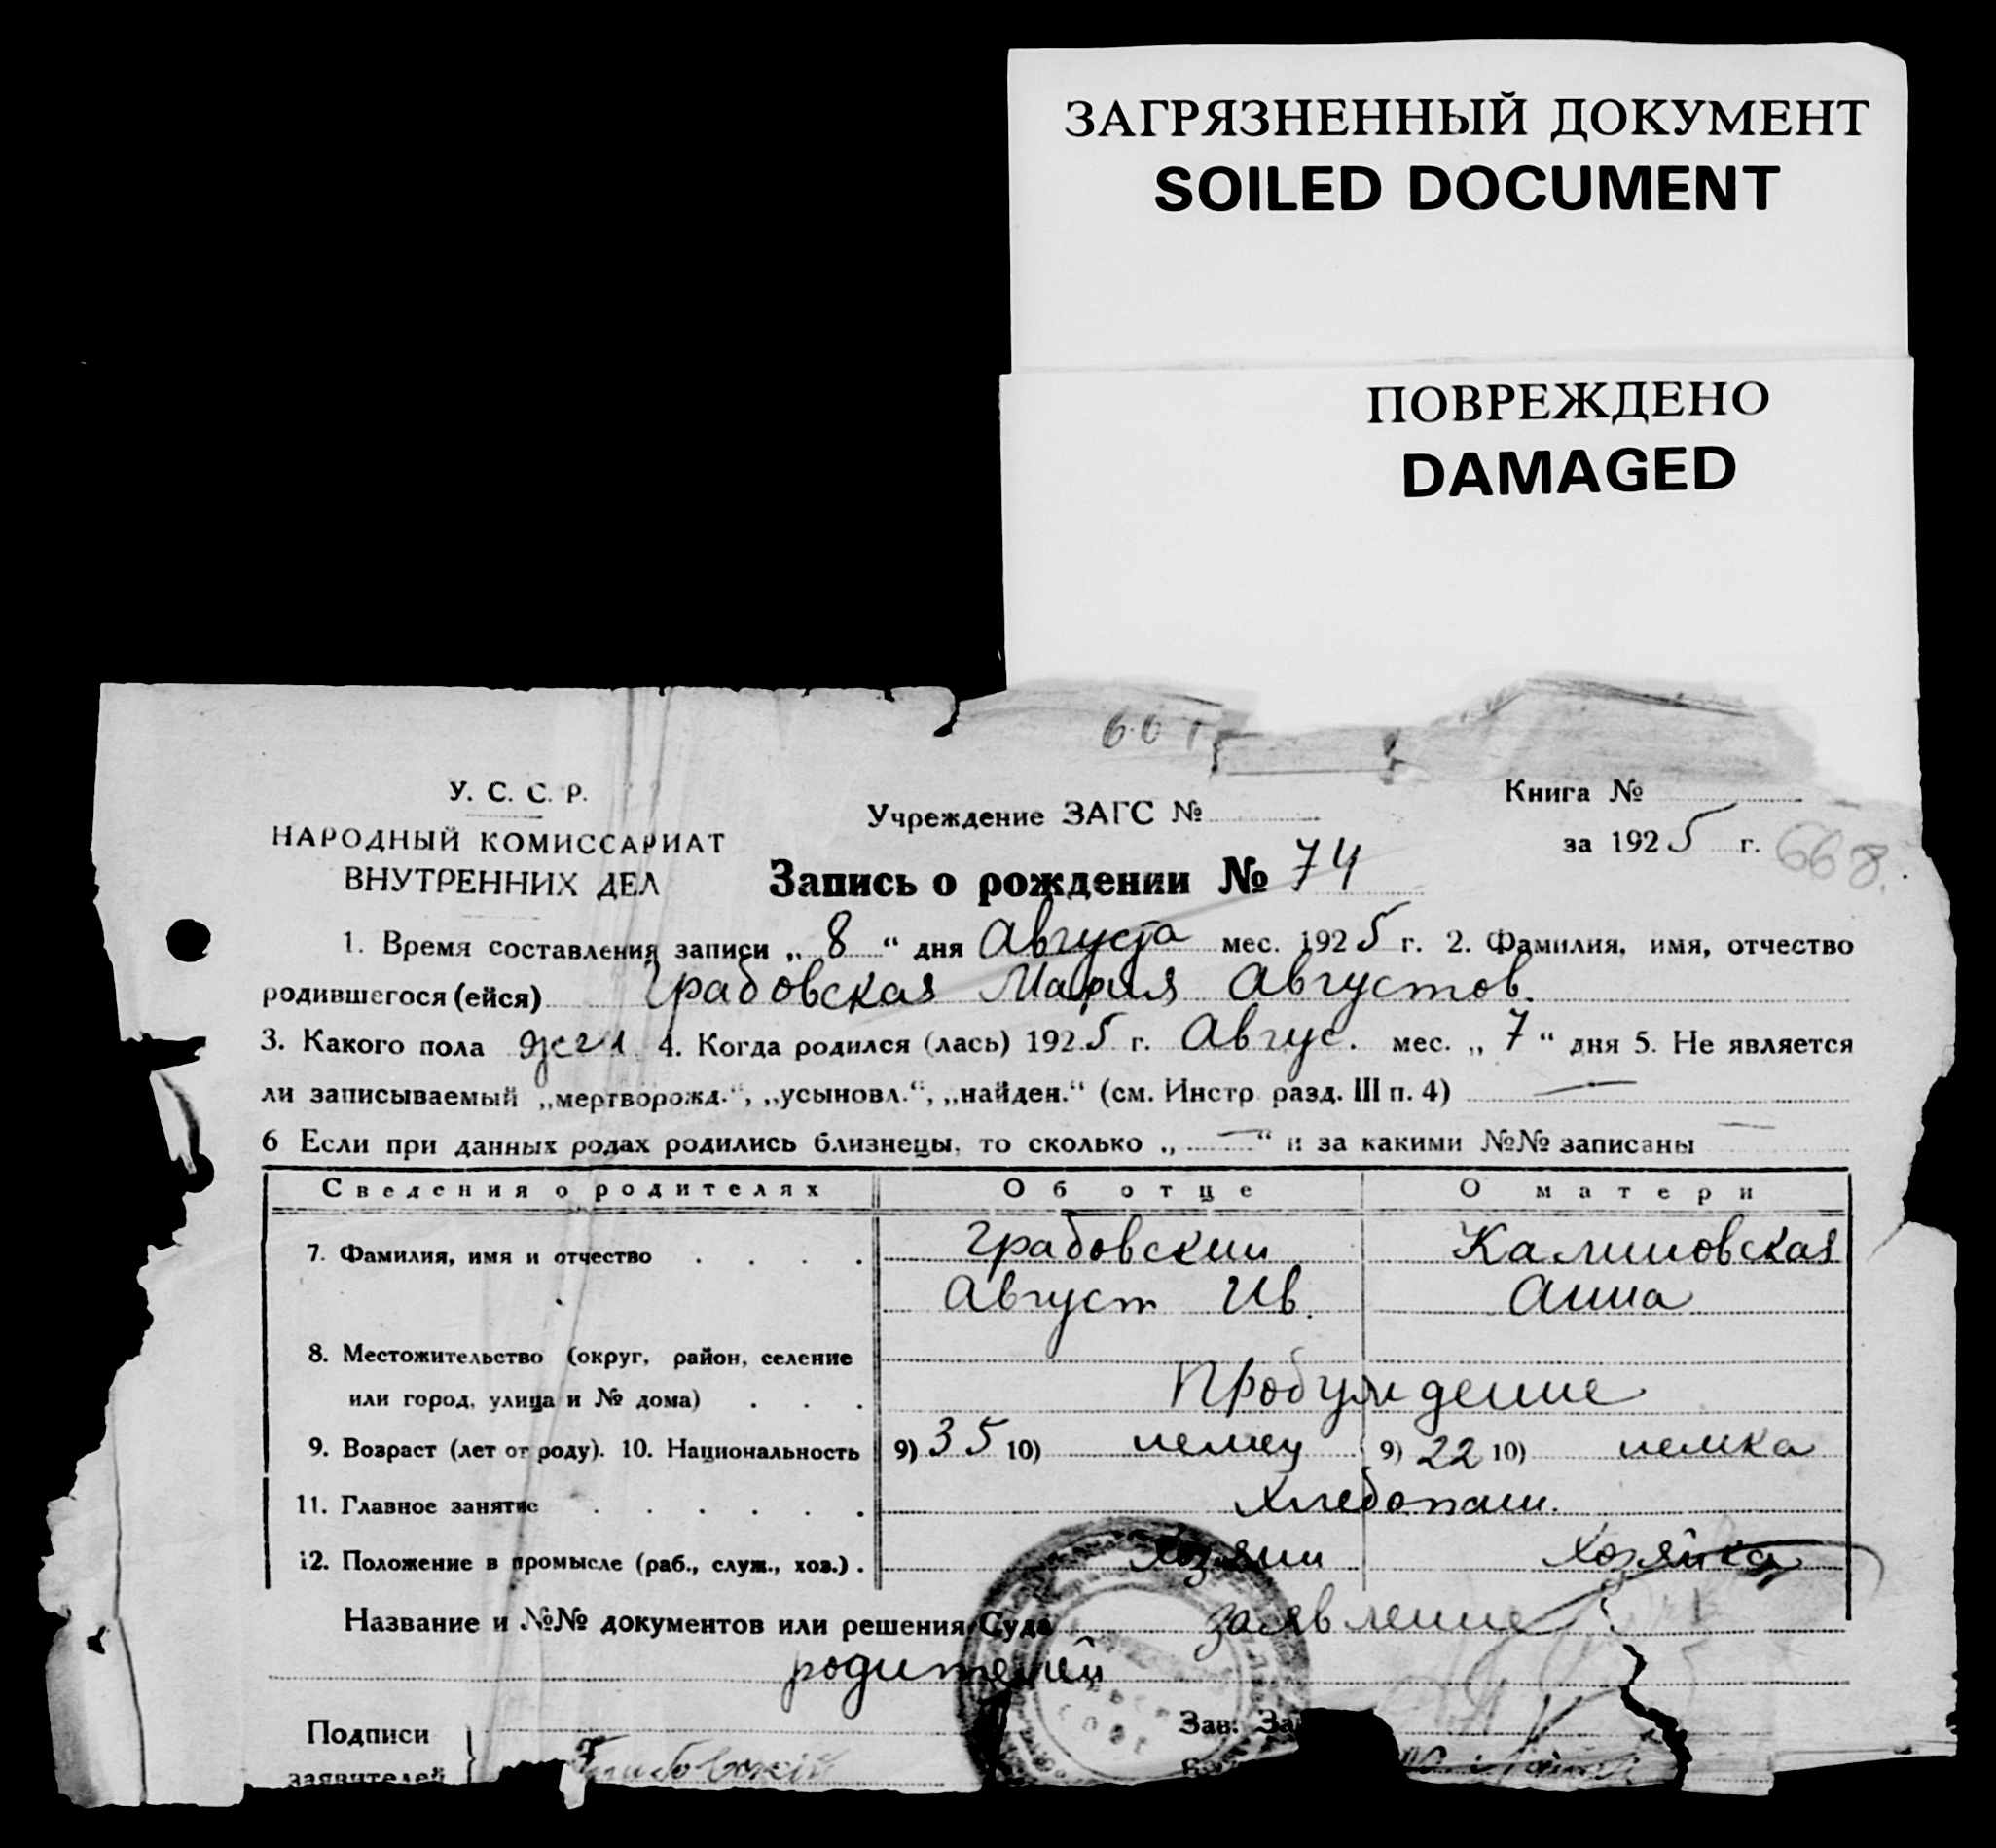 ЗАГРЯЗНЕННЫЙ ДОКУМЕНТ
SOILED DOCUMENT
ПОВРЕЖДЕНО
DAMAGED
У. С. С. Р.
НАРОДНЫЙ КОМИССАРИАТ
ВНУТРЕННИХ ДЕЛ
Учреждение ЗАГС №
Книга №
за 1925 г. 668.
Запись о рождении № 74
1. Время составления записи „ 8 “ дня Августа мес. 1925 г. 2. Фамилия, имя, отчество
родившегося (ейся) Грабовская Мария Августов.
3. Какого пола 4. Когда родился (лась) 1925 г. Авгус. мес. „ 7 “ дня 5. Не является
ли записываемый „мертворожд.“, „усыновл.“, „найден.“ (см. Инстр. разд. III п. 4) —
6 Если при данных родах родились близнецы, то сколько „ — “ и за какими №№ записаны —
Сведения о родителях Об отце О матери
7. Фамилия, имя и отчество . . . . Грабовский Калиновская
Август Ив. Анна
8. Местожительство (округ, район, селение
или город, улица и № дома) . . . Пробуждение
9. Возраст (лет от роду). 10. Национальность 9) 35 10) немец 9) 22 10) немка
11. Главное занятие . . . . . . Хлебопаш.
12. Положение в промысле (раб., служ., хоз.) . Хозяин Хозяйка
Название и №№ документов или решения Суда заявление
родителей
Подписи Зав. За
заявителей